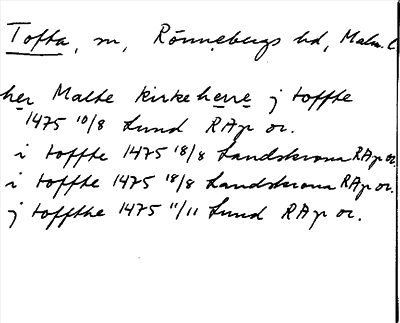 Tofta, sn, Rönnebergs hd, Malm. l
her Malte kirkeherre j toffte
1475 10/8 Lund RAp or.
i toffte 1475 18/8 Landskrona RAp or.
i toffte 1475 18/8 Landskrona RAp or.
j toffthe 1475 11/11 Lund RAp or.